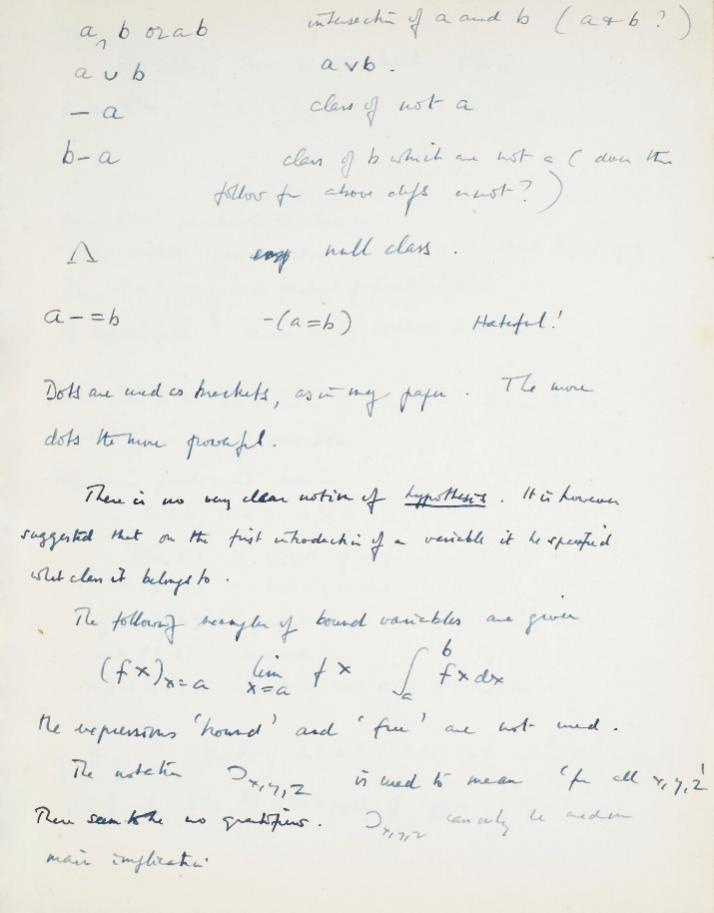 a ∩ b or ab intersection of a and b (a & b ?)
a ∪ b a v b.
– a class of not a
b – a class of b which are not a ( does this
follow fr above defs or not? )
Λ null class.
a – = b –(a = b) Hateful!
Dots are used as brackets, as in my paper. The more
dots the more powerful.
There is no very clear notion of hypothesis. It is however
suggested that on the first introduction of a variable it be specified
what class it belongs to.
The following examples of bound variables are given
(fx)x=a lim x=a fx ∫ab fx dx
the expressions 'bound' and 'free' are not used.
The notation Ɔx,y,z is used to mean 'for all x,y,z'
There seem to be no quantifiers. Ɔx,y,z can only be used in
main implication